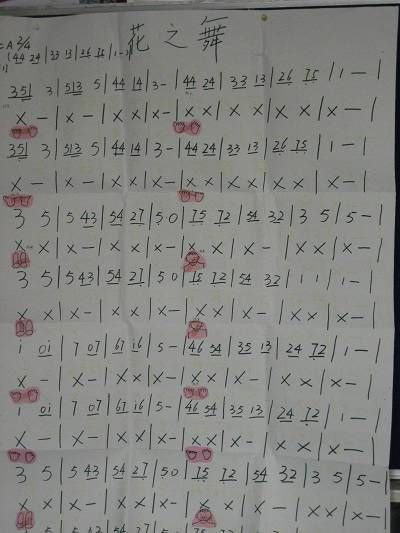 花之舞
=A 2/4
(44 24 | 33 13 | 26 75 | 1 - )
351 3 | 513 5 | 44 14 | 3 - | 44 24 | 33 13 | 26 75 | 1 - |
X - | X - | X - | X - | X X | X X | X X | X - |
351 3 | 513 5 | 44 14 | 3 - | 44 24 | 33 13 | 26 75 | 1 - |
X - | X - | X - | X - | X X | X X | X X | X - |
3 5 | 5 43 | 54 27 | 5 0 | 75 72 | 54 32 | 3 5 | 5 - |
X X | X - | X X | X - | X X | X - | X X | X - |
3 5 | 5 43 | 54 27 | 5 0 | 75 72 | 54 32 | 1 1 | 1 - |
X X | X - | X X | X - | X X | X - | X X | X - |
1 01 | 7 07 | 67 16 | 5 - | 46 54 | 35 13 | 24 72 | 1 - |
X - | X - | X X | X - | X X | X - | X X | X - |
1 01 | 7 07 | 67 16 | 5 - | 46 54 | 35 13 | 24 72 | 1 - |
X - | X - | X X | X - | X X | X - | X X | X - |
3 5 | 5 43 | 54 27 | 5 0 | 75 72 | 54 32 | 3 5 | 5 - |
X X | X - | X X | X - | X X | X - | X X | X - |